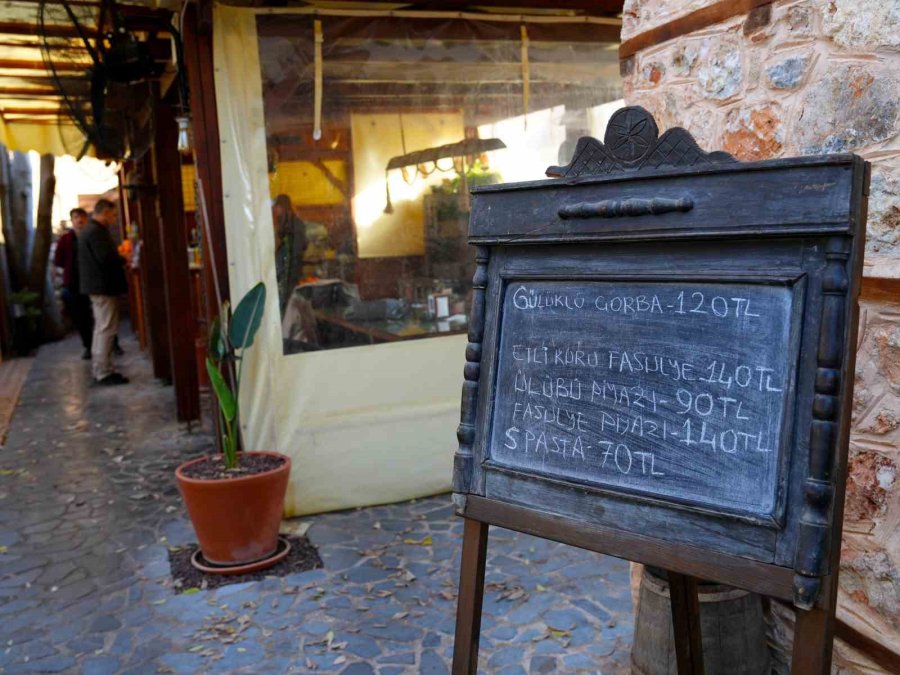 GÜLÜKLÜ ÇORBA-120TL
ETLİ KURU FASULYE-140TL
ÜLÜBÜ PİYAZI-90TL
FASULYE PİYAZI-140TL
S PASTA-70TL